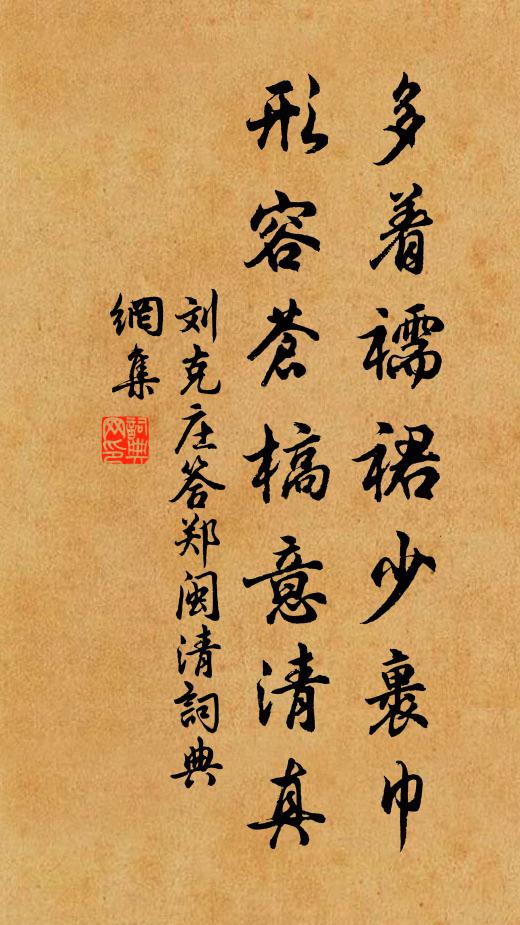 多着襦裙少裹巾
形容苍槁意清真
刘克庄答郑闽清詞典
網集
詞典网印